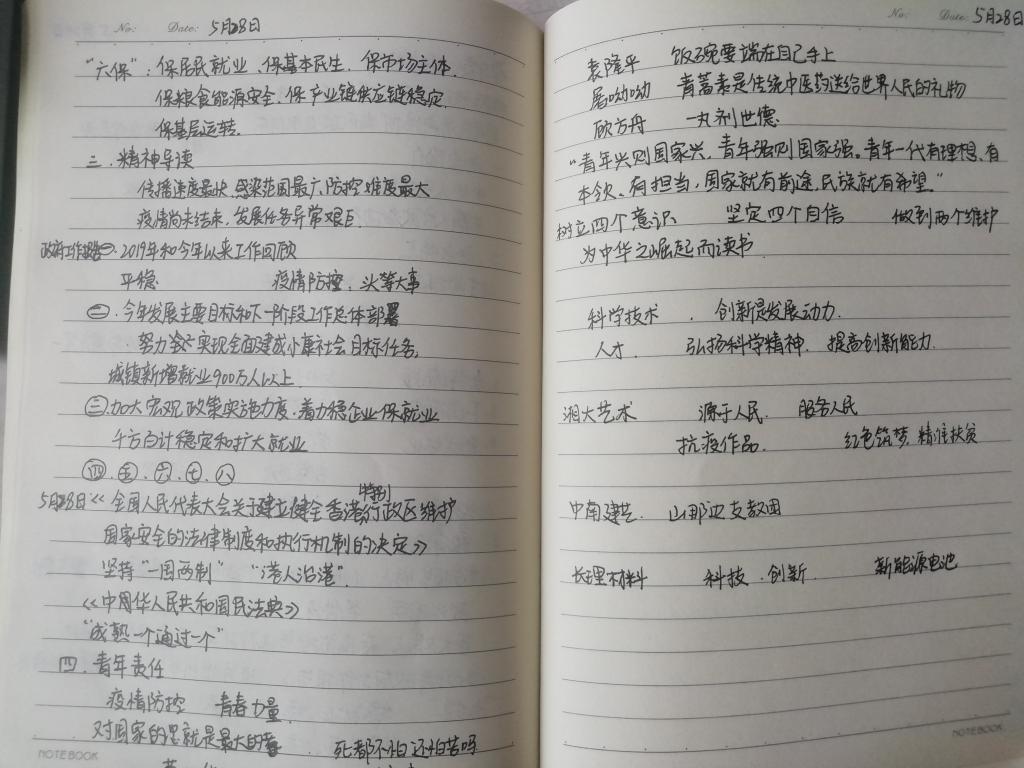 No: Date: 5月28日
"六保": 保居民就业、保基本民生、保市场主体、
保粮食能源安全、保产业链供应链稳定、
保基层运转.
三.精神导读
传播速度最快、感染范围最广、防控难度最大
疫情尚未结束,发展任务异常艰巨.
政府工作报告㊀.2019年和今年以来工作回顾
平稳 疫情防控、头等大事
㊁.今年发展主要目标和下一阶段工作总体部署
努力 实现全面建成小康社会目标任务.
城镇新增就业900万人以上.
㊂.加大宏观政策实施力度,着力稳企业保就业
千方百计稳定和扩大就业
㊃.㊄.㊅.㊆.㊇
特别
5月28日《全国人民代表大会关于建立健全香港行政区维护
国家安全的法律制度和执行机制的决定》
坚持"一国两制" "港人治港".
《中国华人民共和国民法典》
"成熟一个通过一个"
四.青年责任
疫情防控 青春力量.
对国家的 就是最大的 . 死都不怕还怕苦吗
NOTEBOOK
No: Date: 5月28日
袁隆平 饭碗要端在自己手上
屠呦呦 青蒿素是传统中医药送给世界人民的礼物
顾方舟 一丸剂世德.
"青年兴则国家兴,青年强则国家强。青年一代有理想、有
本领、有担当,国家就有前途,民族就有希望."
树立四个意识 坚定四个自信 做到两个维护
为中华之崛起而读书
科学技术 . 创新是发展动力.
人才. 弘扬科学精神、提高创新能力.
湘大艺术 源于人民. 服务人民
抗疫作品. 红色筑梦 精准扶贫
中南建艺. 山那边支教团
长理材料 科技.创新. 新能源电池
NOTEBOOK